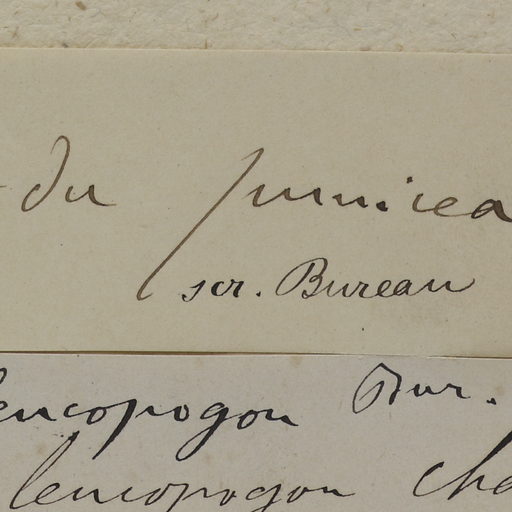 du punicea
scr. Bureau
leucopogon Bur.
leucopogon cha